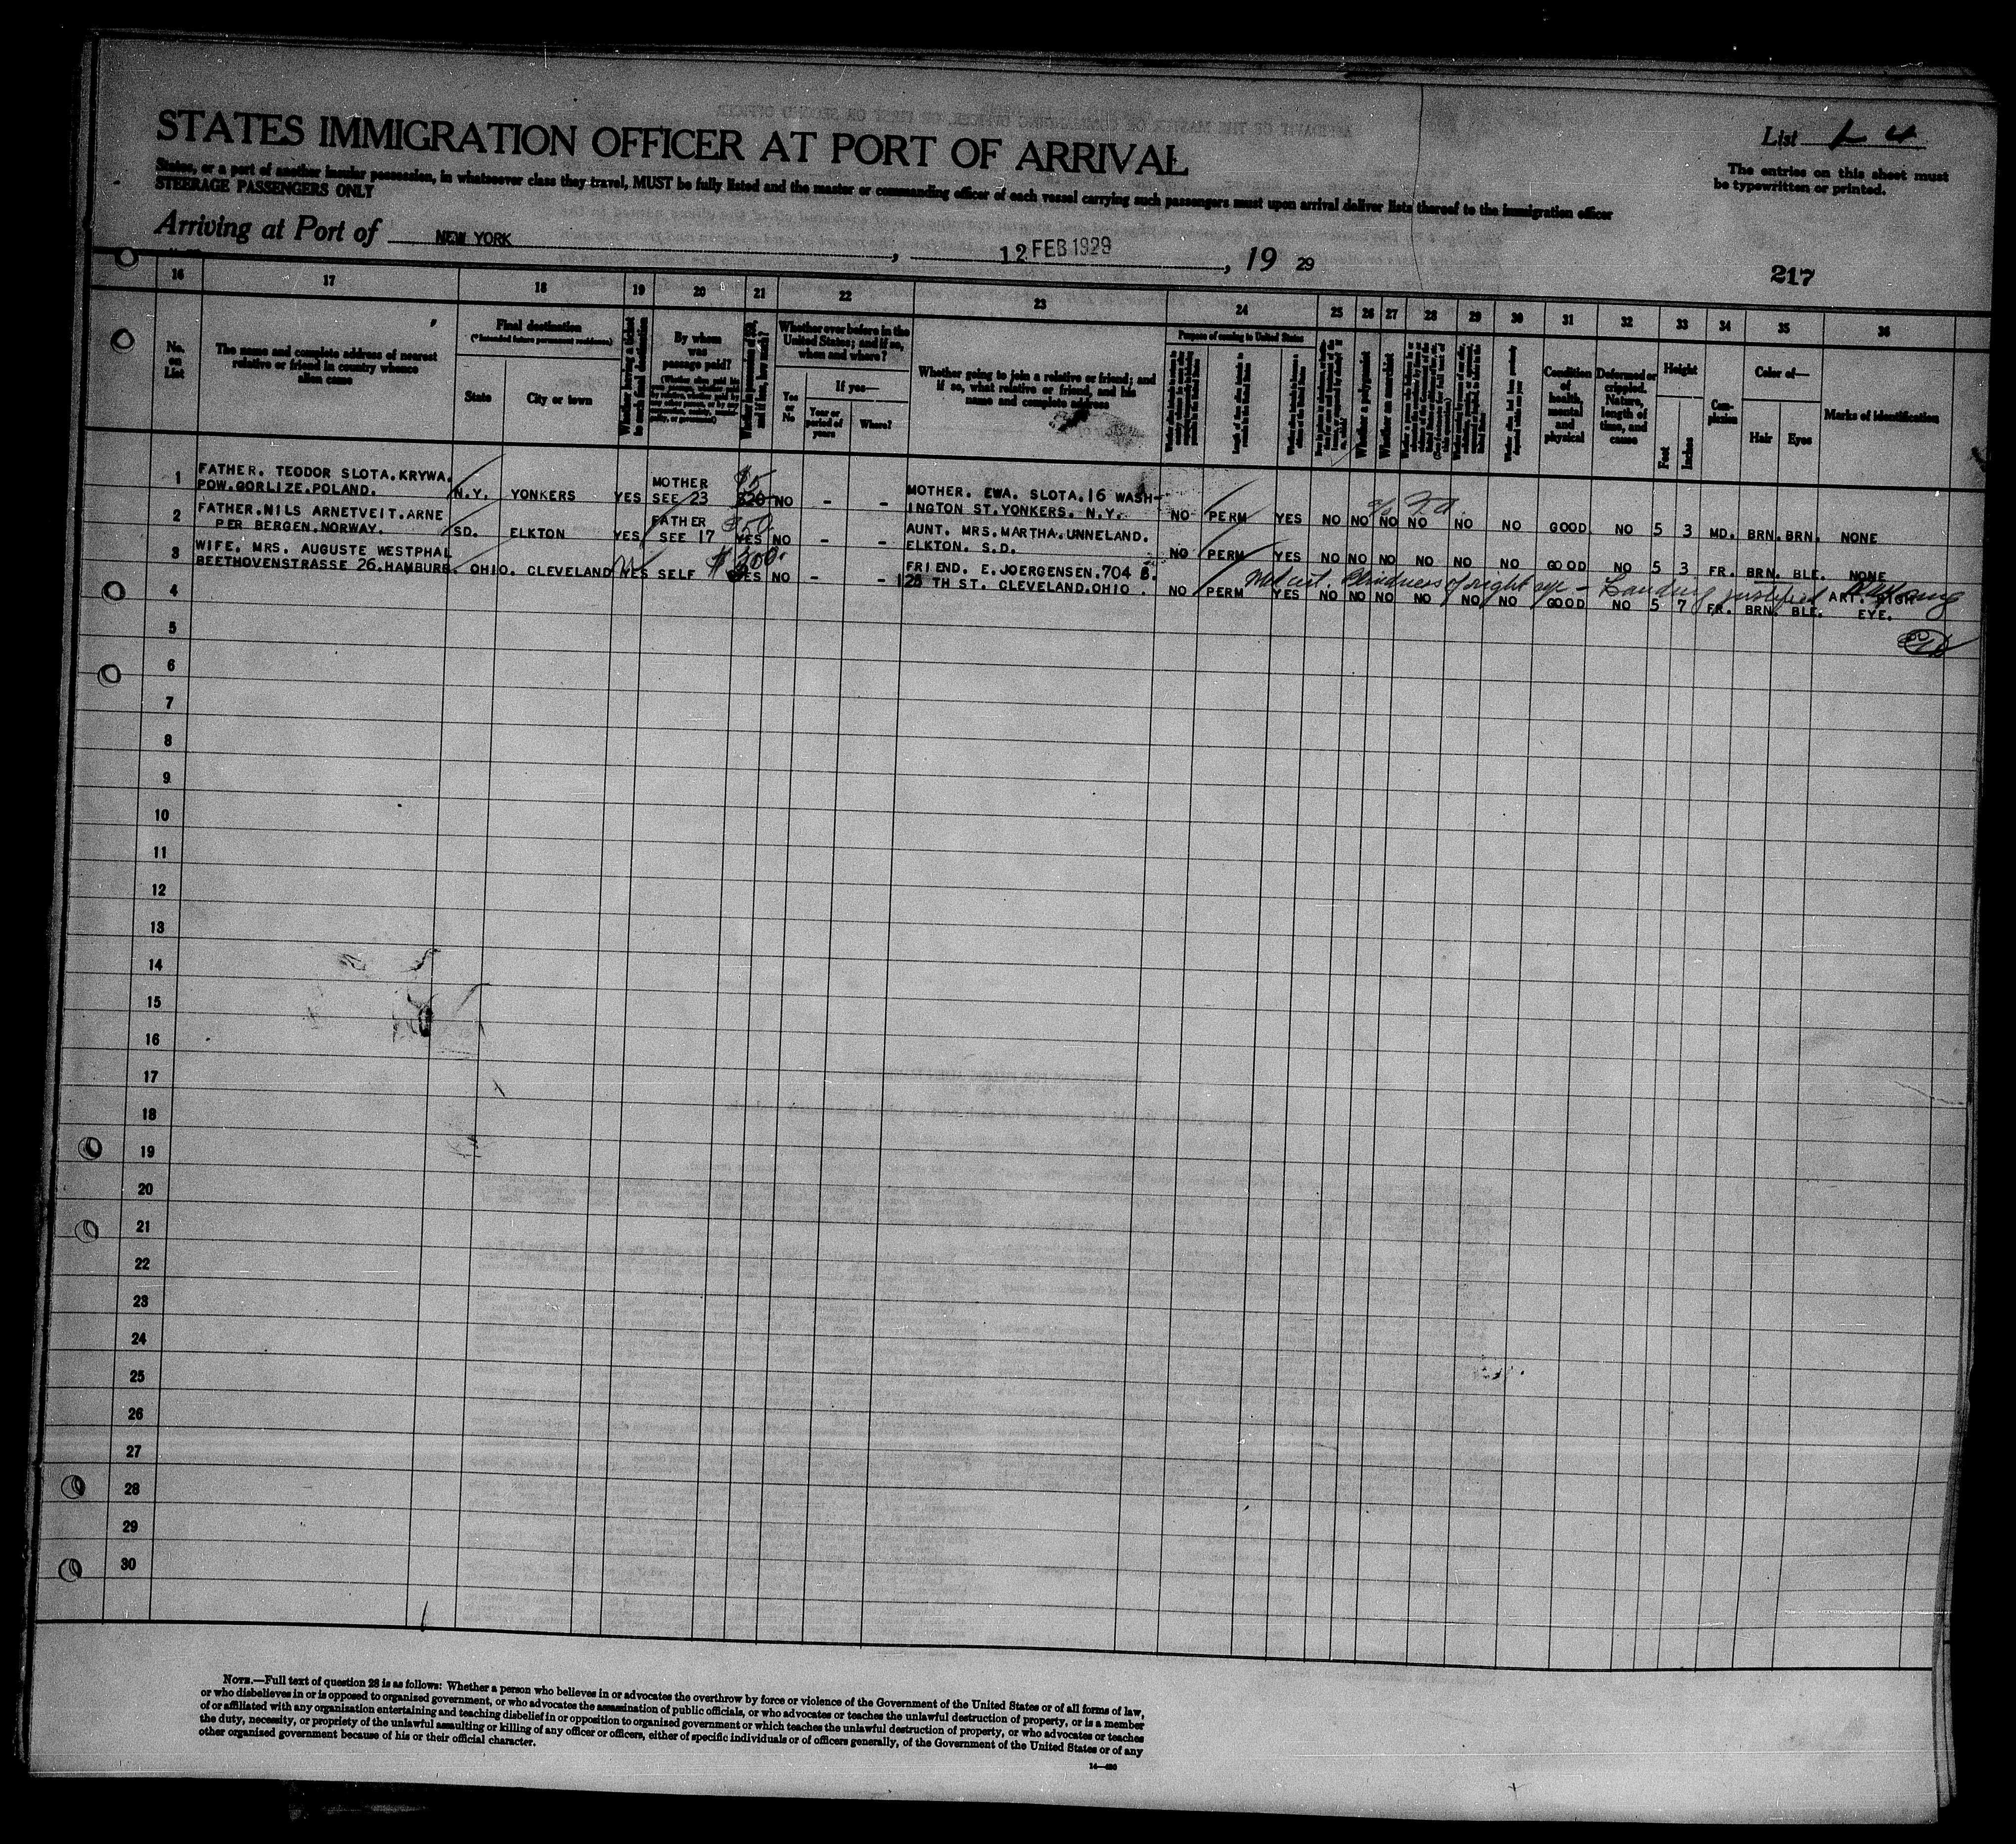 STATES IMMIGRATION OFFICER AT PORT OF ARRIVAL
List 4
States, or a part of another insular possession, in whatsoever class they travel, MUST be fully listed and the master or commanding officer of each vessel carrying such passengers must upon arrival deliver lists thereof to the immigration officer
STEERAGE PASSENGERS ONLY
The entries on this sheet must
be typewritten or printed.
Arriving at Port of NEW YORK, 12 FEB 1929, 19 29
217
16 17 18 19 20 21 22 23 24 25 26 27 28 29 30 31 32 33 34 35 36
No. on List
The name and complete address of nearest
relative or friend in country whence
alien came
Final destination
(*Intended future permanent residence)
State
City or town
Whether having a ticket to such final destination
By whom
was
passage paid?
Whether ever before in the
United States; and if so,
when and where?
Yes or No
If yes—
Year or period of years
Where?
Whether going to join a relative or friend; and
if so, what relative or friend, and his
name and complete address
Purpose of coming to United States
Whether a polygamist
Whether an anarchist
Condition of health, mental and physical
Deformed or crippled. Nature, length of time, and cause
Height
Feet
Inches
Com-plexion
Color of—
Hair
Eyes
Marks of identification
1 FATHER. TEODOR SLOTA. KRYWA.
POW.GORLIZE.POLAND. N.Y. YONKERS YES MOTHER SEE 23 $20 NO - - MOTHER. EWA. SLOTA.16 WASH-
INGTON ST.YONKERS. N.Y. NO PERM YES NO NO NO NO NO NO GOOD NO 5 3 MD. BRN. BRN. NONE
2 FATHER.NILS ARNETVEIT.ARNE
PER BERGEN.NORWAY. SD. ELKTON YES FATHER SEE 17 $50 YES NO - - AUNT. MRS.MARTHA.UNNELAND.
ELKTON. S.D. NO PERM YES NO NO NO NO NO NO GOOD NO 5 3 FR. BRN. BLE. NONE
3 WIFE. MRS. AUGUSTE WESTPHAL
BEETHOVENSTRASSE 26.HAMBURG. OHIO. CLEVELAND YES SELF $300 YES NO - - FRIEND. E.JOERGENSEN.704 E.
125 TH ST. CLEVELAND.OHIO. NO PERM YES NO NO NO NO NO NO GOOD NO 5 7 FR. BRN. BLE. ART. RIGH
EYE.
Med cert. blindness of right eye - Landing justified
4
5
6
7
8
9
10
11
12
13
14
15
16
17
18
19
20
21
22
23
24
25
26
27
28
29
30
NOTE.—Full text of question 28 is as follows: Whether a person who believes in or advocates the overthrow by force or violence of the Government of the United States or of all forms of law,
or who disbelieves in or is opposed to organized government, or who advocates the assassination of public officials, or who advocates or teaches the unlawful destruction of property, or is a member
of or affiliated with any organization entertaining and teaching disbelief in or opposition to organized government or which teaches the unlawful destruction of property, or who advocates or teaches
the duty, necessity, or propriety of the unlawful assaulting or killing of any officer or officers, either of specific individuals or of officers generally, of the Government of the United States or of any
other organized government because of his or their official character.